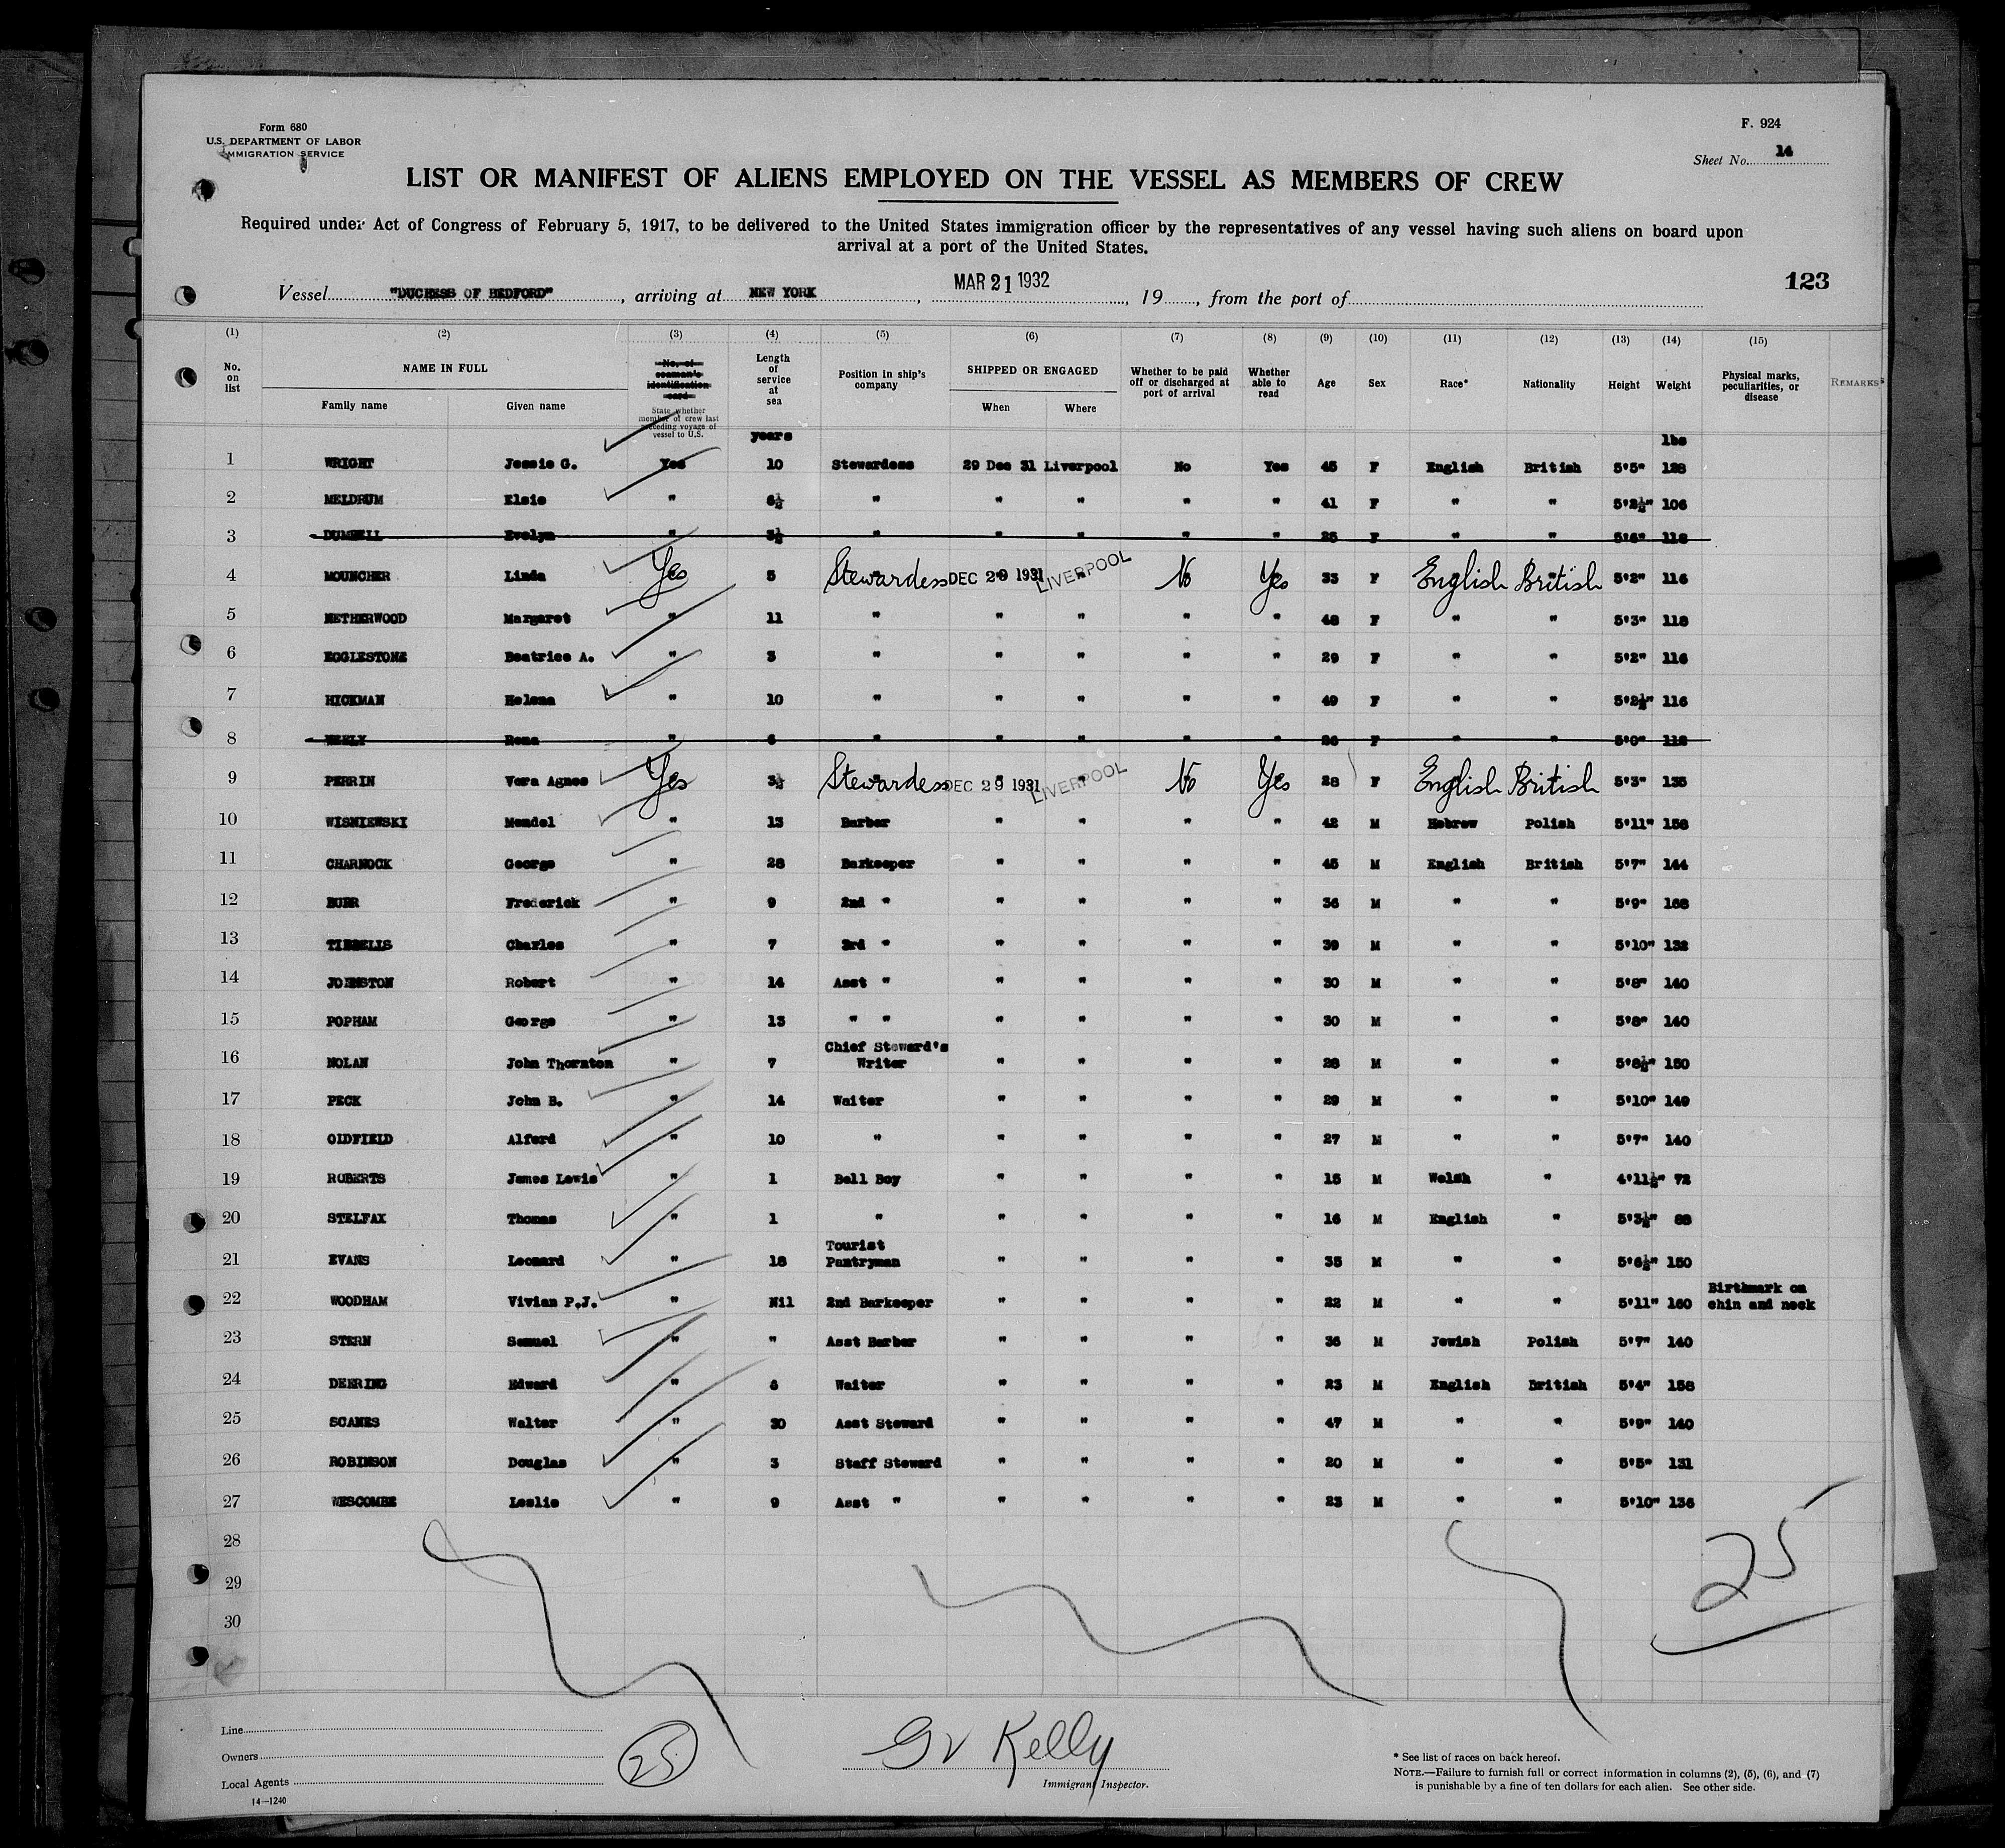 Form 680
U.S. DEPARTMENT OF LABOR
IMMIGRATION SERVICE
F. 924
Sheet No. 14
LIST OR MANIFEST OF ALIENS EMPLOYED ON THE VESSEL AS MEMBERS OF CREW
Required under Act of Congress of February 5, 1917, to be delivered to the United States immigration officer by the representatives of any vessel having such aliens on board upon
arrival at a port of the United States.
Vessel "DUCHESS OF BEDFORD", arriving at NEW YORK, MAR 21 1932, 19, from the port of
123
(1) (2) (3) (4) (5) (6) (7) (8) (9) (10) (11) (12) (13) (14) (15)
No. on list
NAME IN FULL
Family name Given name
No. of seaman's identification card
State whether member of crew last preceding voyage of vessel to U.S.
Length of service at sea
Position in ship's company
SHIPPED OR ENGAGED
When Where
Whether to be paid off or discharged at port of arrival
Whether able to read
Age Sex Race* Nationality Height Weight
Physical marks, peculiarities, or disease
REMARKS
years lbs
1 WRIGHT Jessie G. Yes 10 Stewardess 29 Dec 31 Liverpool No Yes 45 F English British 5'5" 128
2 MELDRUM Elsie " 6½ " " " " " 41 F " " 5'2½" 106
3 DUMBELL Evelyn " 3½ " " " " " 25 F " " 5'6" 118
4 MOUNCHER Linda Yes 5 Stewardess DEC 29 1931 LIVERPOOL No Yes 33 F English British 5'2" 116
5 NETHERWOOD Margaret " 11 " " " " " 48 F " " 5'3" 118
6 EGGLESTONE Beatrice A. " 3 " " " " " 29 F " " 5'2" 116
7 HICKMAN Helena " 10 " " " " " 49 F " " 5'2½" 116
8 Rona " 6 " " " " " 26 F " " 5'0" 112
9 PERRIN Vera Agnes Yes 3½ Stewardess DEC 29 1931 LIVERPOOL No Yes 28 F English British 5'3" 135
10 WISNIEWSKI Mendel " 13 Barber " " " " 42 M Hebrew Polish 5'11" 158
11 CHARNOCK George " 28 Barkeeper " " " " 45 M English British 5'7" 144
12 BURR Frederick " 9 2nd " " " " " 36 M " " 5'9" 168
13 TIBBELLS Charles " 7 3rd " " " " " 39 M " " 5'10" 132
14 JOHNSTON Robert " 14 Asst " " " " " 30 M " " 5'8" 140
15 POPHAM George " 13 " " " " " " 30 M " " 5'8" 140
16 NOLAN John Thornton " 7 Chief Steward's Writer " " " " 28 M " " 5'8½" 150
17 PECK John B. " 14 Waiter " " " " 29 M " " 5'10" 149
18 OLDFIELD Alferd " 10 " " " " " 27 M " " 5'7" 140
19 ROBERTS James Lewis " 1 Bell Boy " " " " 15 M Welsh " 4'11½" 72
20 STELFAX Thomas " 1 " " " " " 16 M English " 5'3½" 88
21 EVANS Leonard " 18 Tourist Pantryman " " " " 35 M " " 5'6½" 150
22 WOODHAM Vivian P.J. " Nil 2nd Barkeeper " " " " 22 M " " 5'11" 160 Birthmark on chin and neck
23 STERN Samuel " " Asst Barber " " " " 36 M Jewish Polish 5'7" 140
24 DEERING Edward " 6 Waiter " " " " 23 M English British 5'4" 158
25 SCANES Walter " 30 Asst Steward " " " " 47 M " " 5'9" 140
26 ROBINSON Douglas " 3 Staff Steward " " " " 20 M " " 5'5" 131
27 WESCOMBE Leslie " 9 Asst " " " " " 23 M " " 5'10" 136
28
29
30
25
Line
Owners
Local Agents
14—1240
25
GV Kelly
Immigrant Inspector.
* See list of races on back hereof.
NOTE.—Failure to furnish full or correct information in columns (2), (5), (6), and (7)
is punishable by a fine of ten dollars for each alien. See other side.